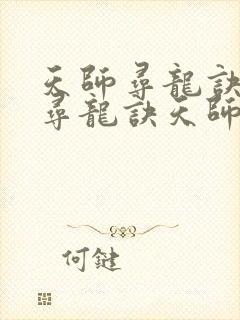 天師尋龍訣
尋龍訣天師
何鍵